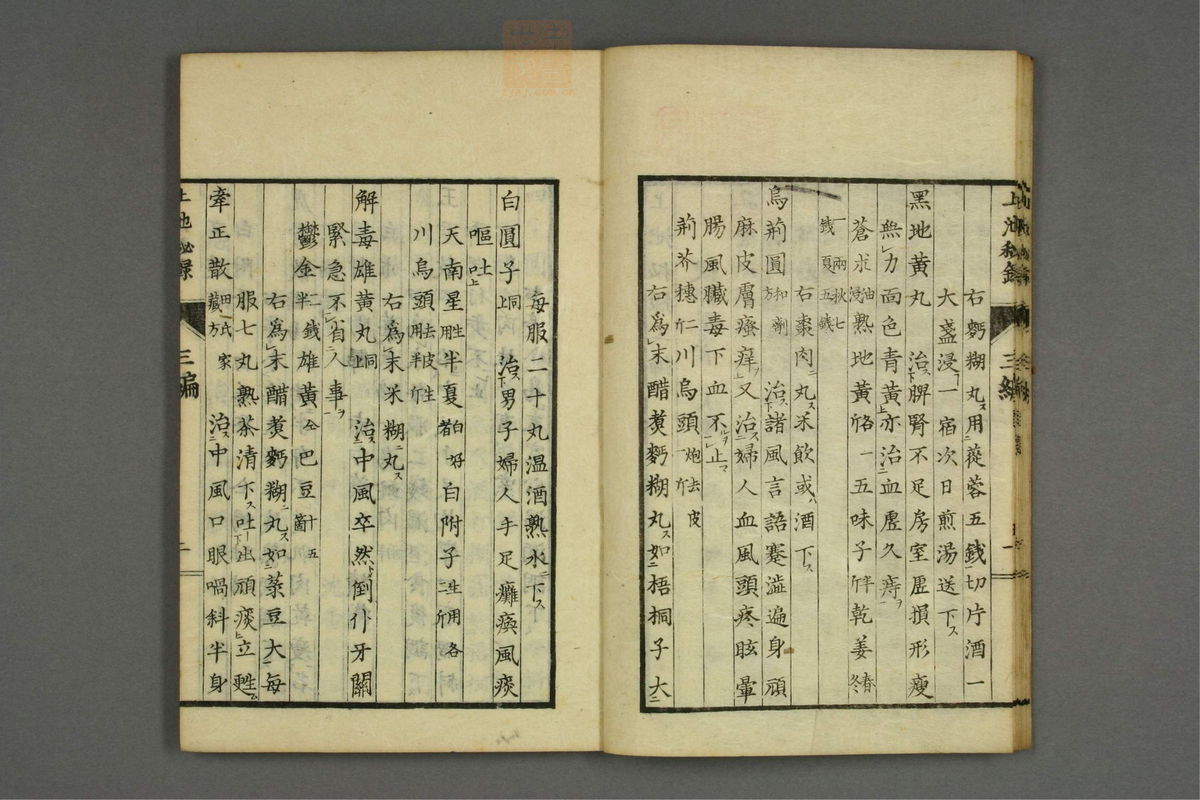 右麪糊丸ス用蓯蓉五錢切片酒一
大盞浸一宿次日煎湯送下ス
黑地黃丸 治ス脾腎不足房室虛損形瘦
無力面色青黃亦治血虛久痔ヲ
蒼朮油浸熟地黃 一五味子 乾姜春冬
一兩秋七錢夏五錢 右棗肉丸ス米飲或酒下ス
烏荊圓和劑方 治ス諸風言語蹇澁遍身頑
麻皮膚瘙痒ヲ又治ス婦人血風頭疼眩暈
腸風臟毒下血不止
荊芥穗 川烏頭炮去皮
右爲末醋煑麪糊丸ス如梧桐子大
每服二十丸溫酒熟水下ス
白圓子同上 治ス男子婦人手足癱瘓風痰
嘔吐
天南星生用半夏白好者白附子生用各二
川烏頭去皮生用半
右爲末米糊丸ス
解毒雄黃丸同上 治ス中風卒然倒仆牙關
緊急不省人事ヲ
鬱金二錢半雄黃仝巴豆十五箇
右爲末醋煑麪糊丸ス如菉豆大每
服七丸熟茶清下ス吐出頑痰立甦
牽正散 治ス中風口眼喎斜半身
三編